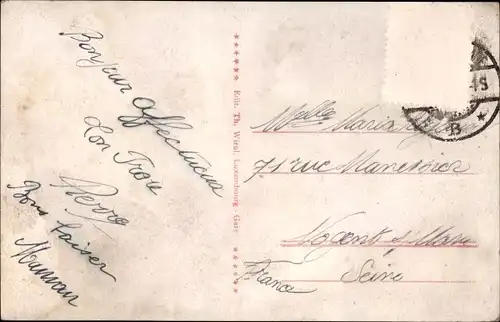 Bonjour affectueux
Ton Frere
Pierre
Bons baiser
Maman
Edit. Th. Wirol, Luxembourg-Gare
Melle Maria
71 rue Manessier
Nogent s/ Marne
Seine
France
B